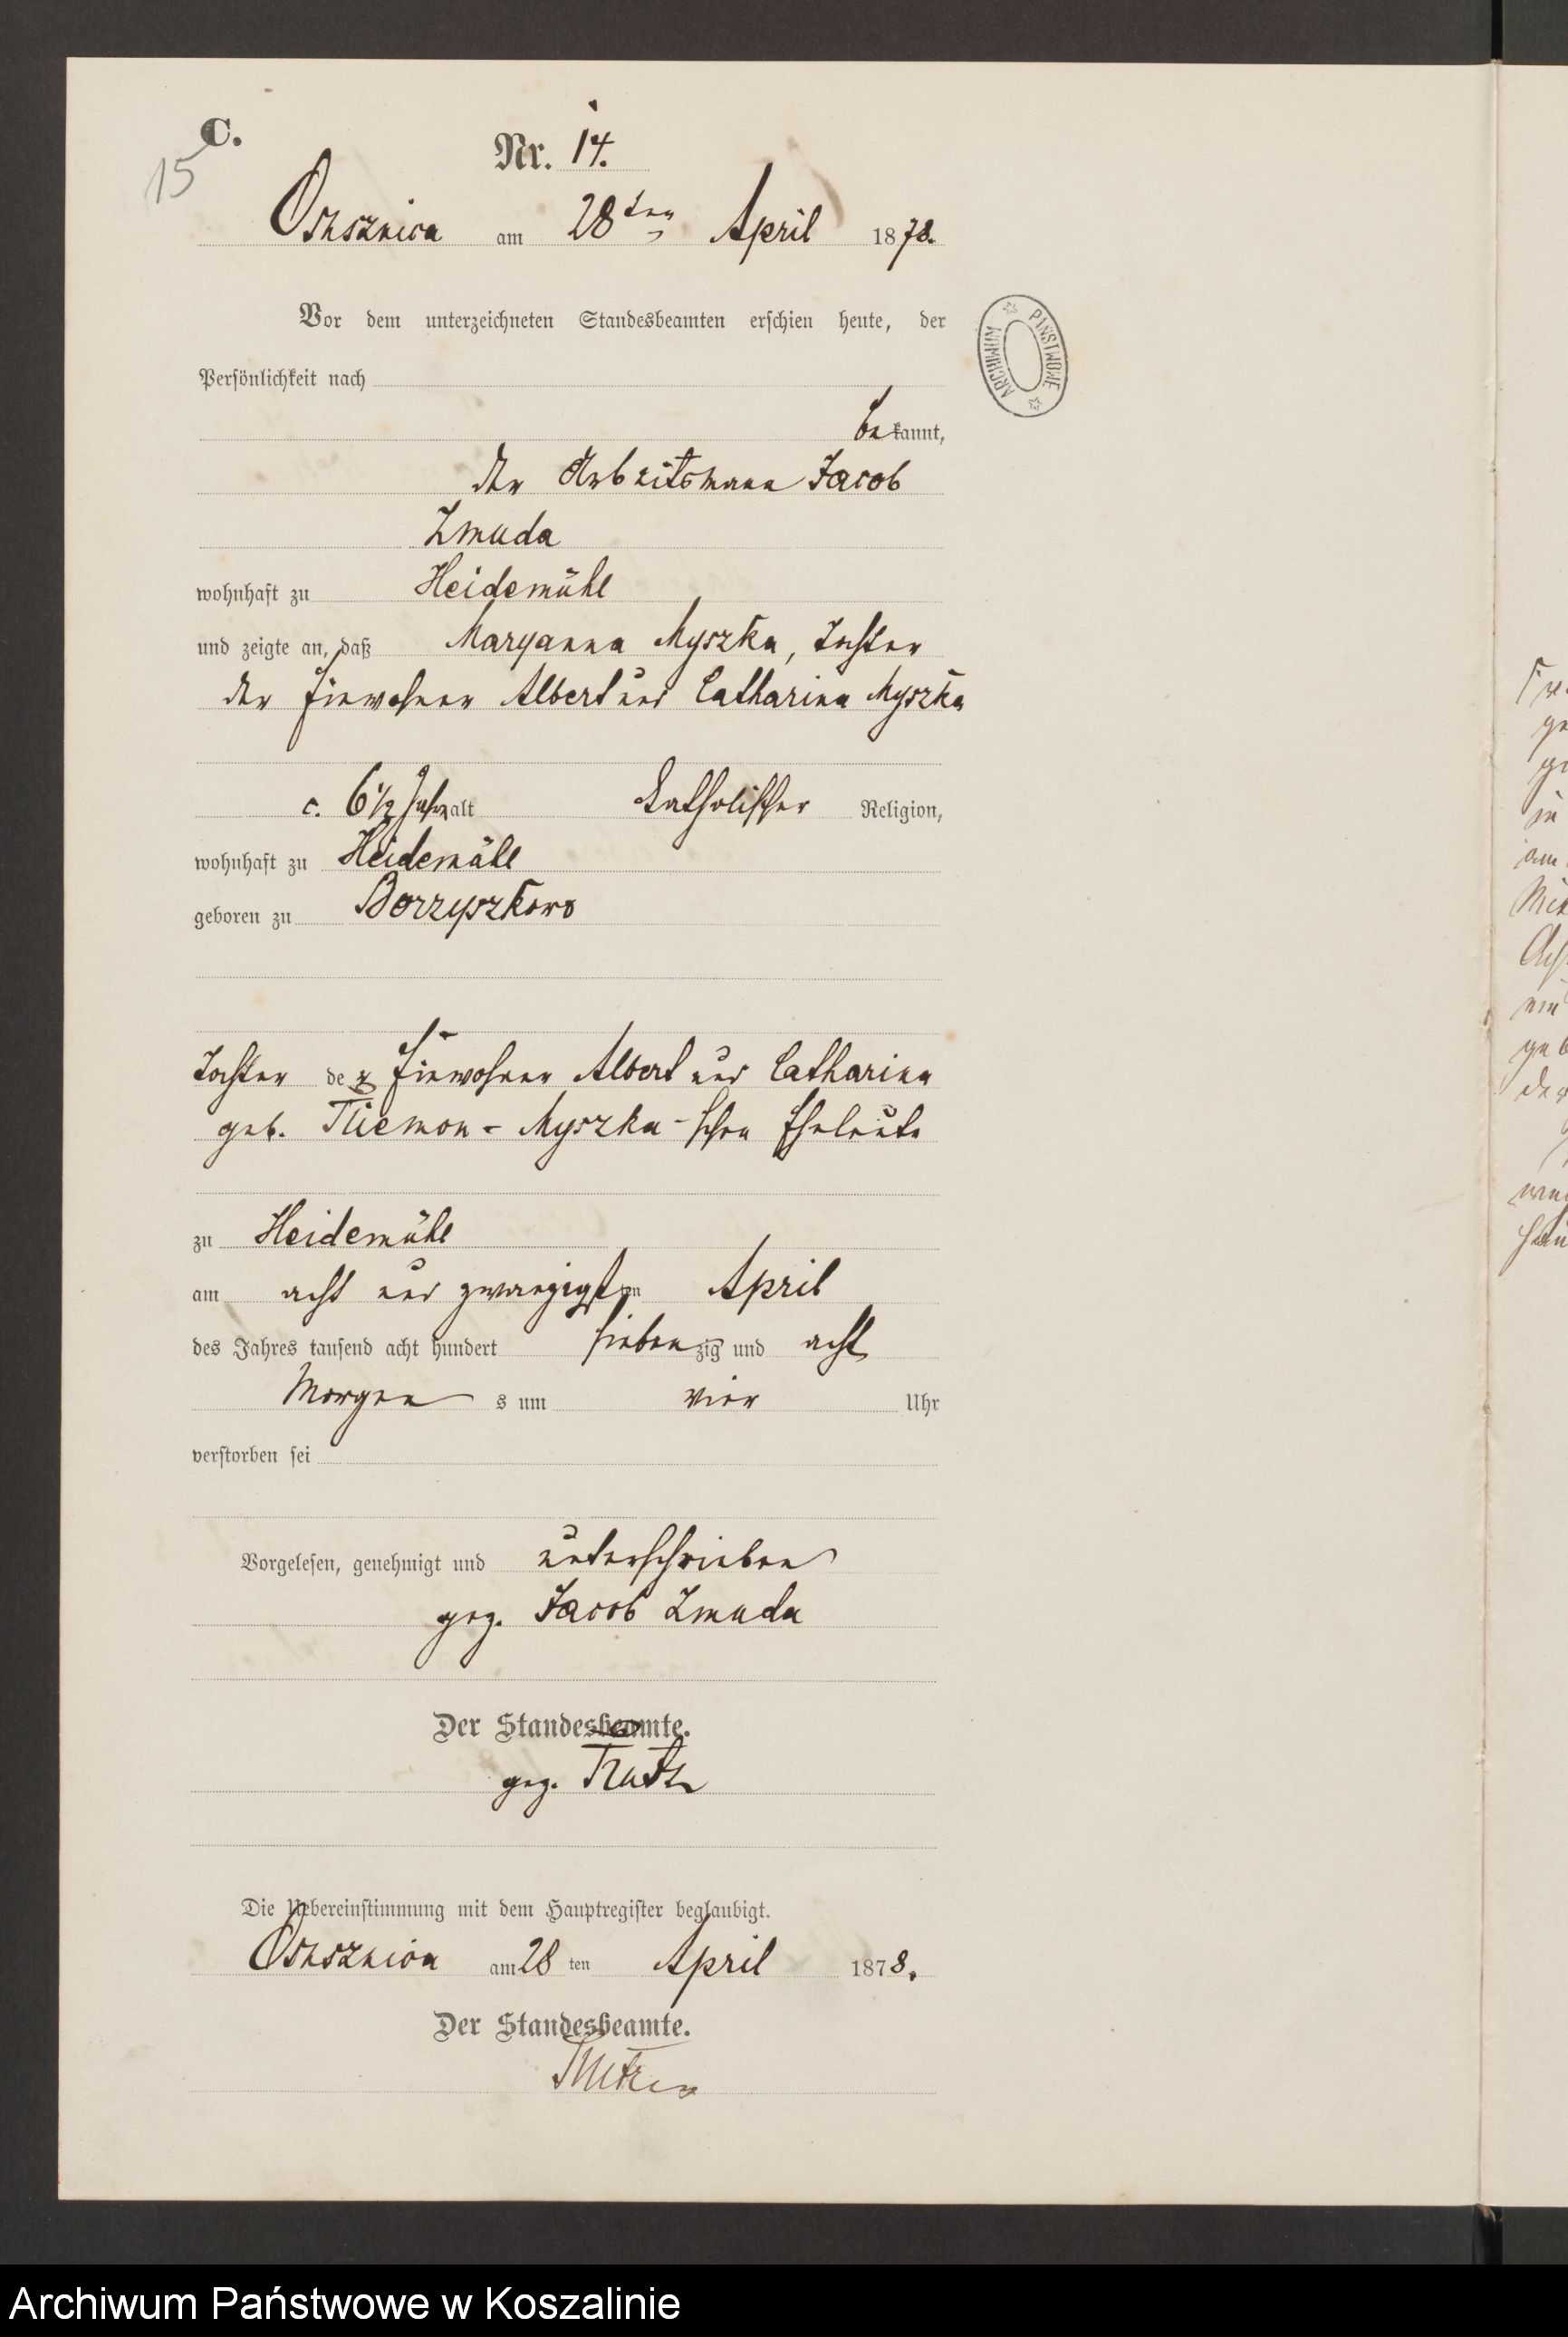 C.
15
Nr. 14.
Ossusznica am 28ten April 1878.
Vor dem unterzeichneten Standesbeamten erschien heute, der
Persönlichkeit nach
bekannt,
der Arbeitsmann Jacob
Zmuda
wohnhaft zu Heidemühl
und zeigte an, daß Maryanna Myszka, Tochter
der Einwohner Albert und Catharina Myszka
c. 6 1/2 Jahr alt katholischer Religion,
wohnhaft zu Heidemühl
geboren zu Borzyszkowo
Tochter der Einwohner Albert und Catharina
geb. - Myszka-schen Eheleute
zu Heidemühl
am acht und zwanzigsten April
des Jahres tausend acht hundert siebenzig und acht
Morgens um vier Uhr
verstorben sei
Vorgelesen, genehmigt und unterschrieben
gez. Jacob Zmuda
Der Standesbeamte.
gez.
Die Uebereinstimmung mit dem Hauptregister beglaubigt.
Ossusznica am 28ten April 1878.
Der Standesbeamte.
ARCHIWUM PAŃSTWOWE
Archiwum Państwowe w Koszalinie